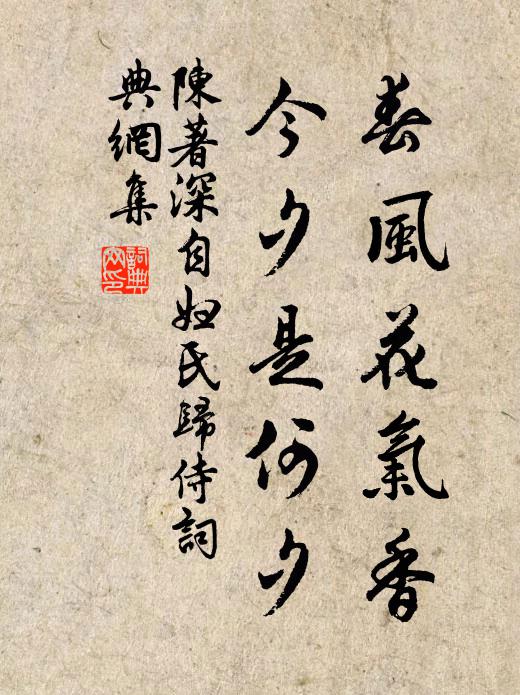 春風花氣香
今夕是何夕
陳著深自妲氏歸侍詞
典網集
詞典